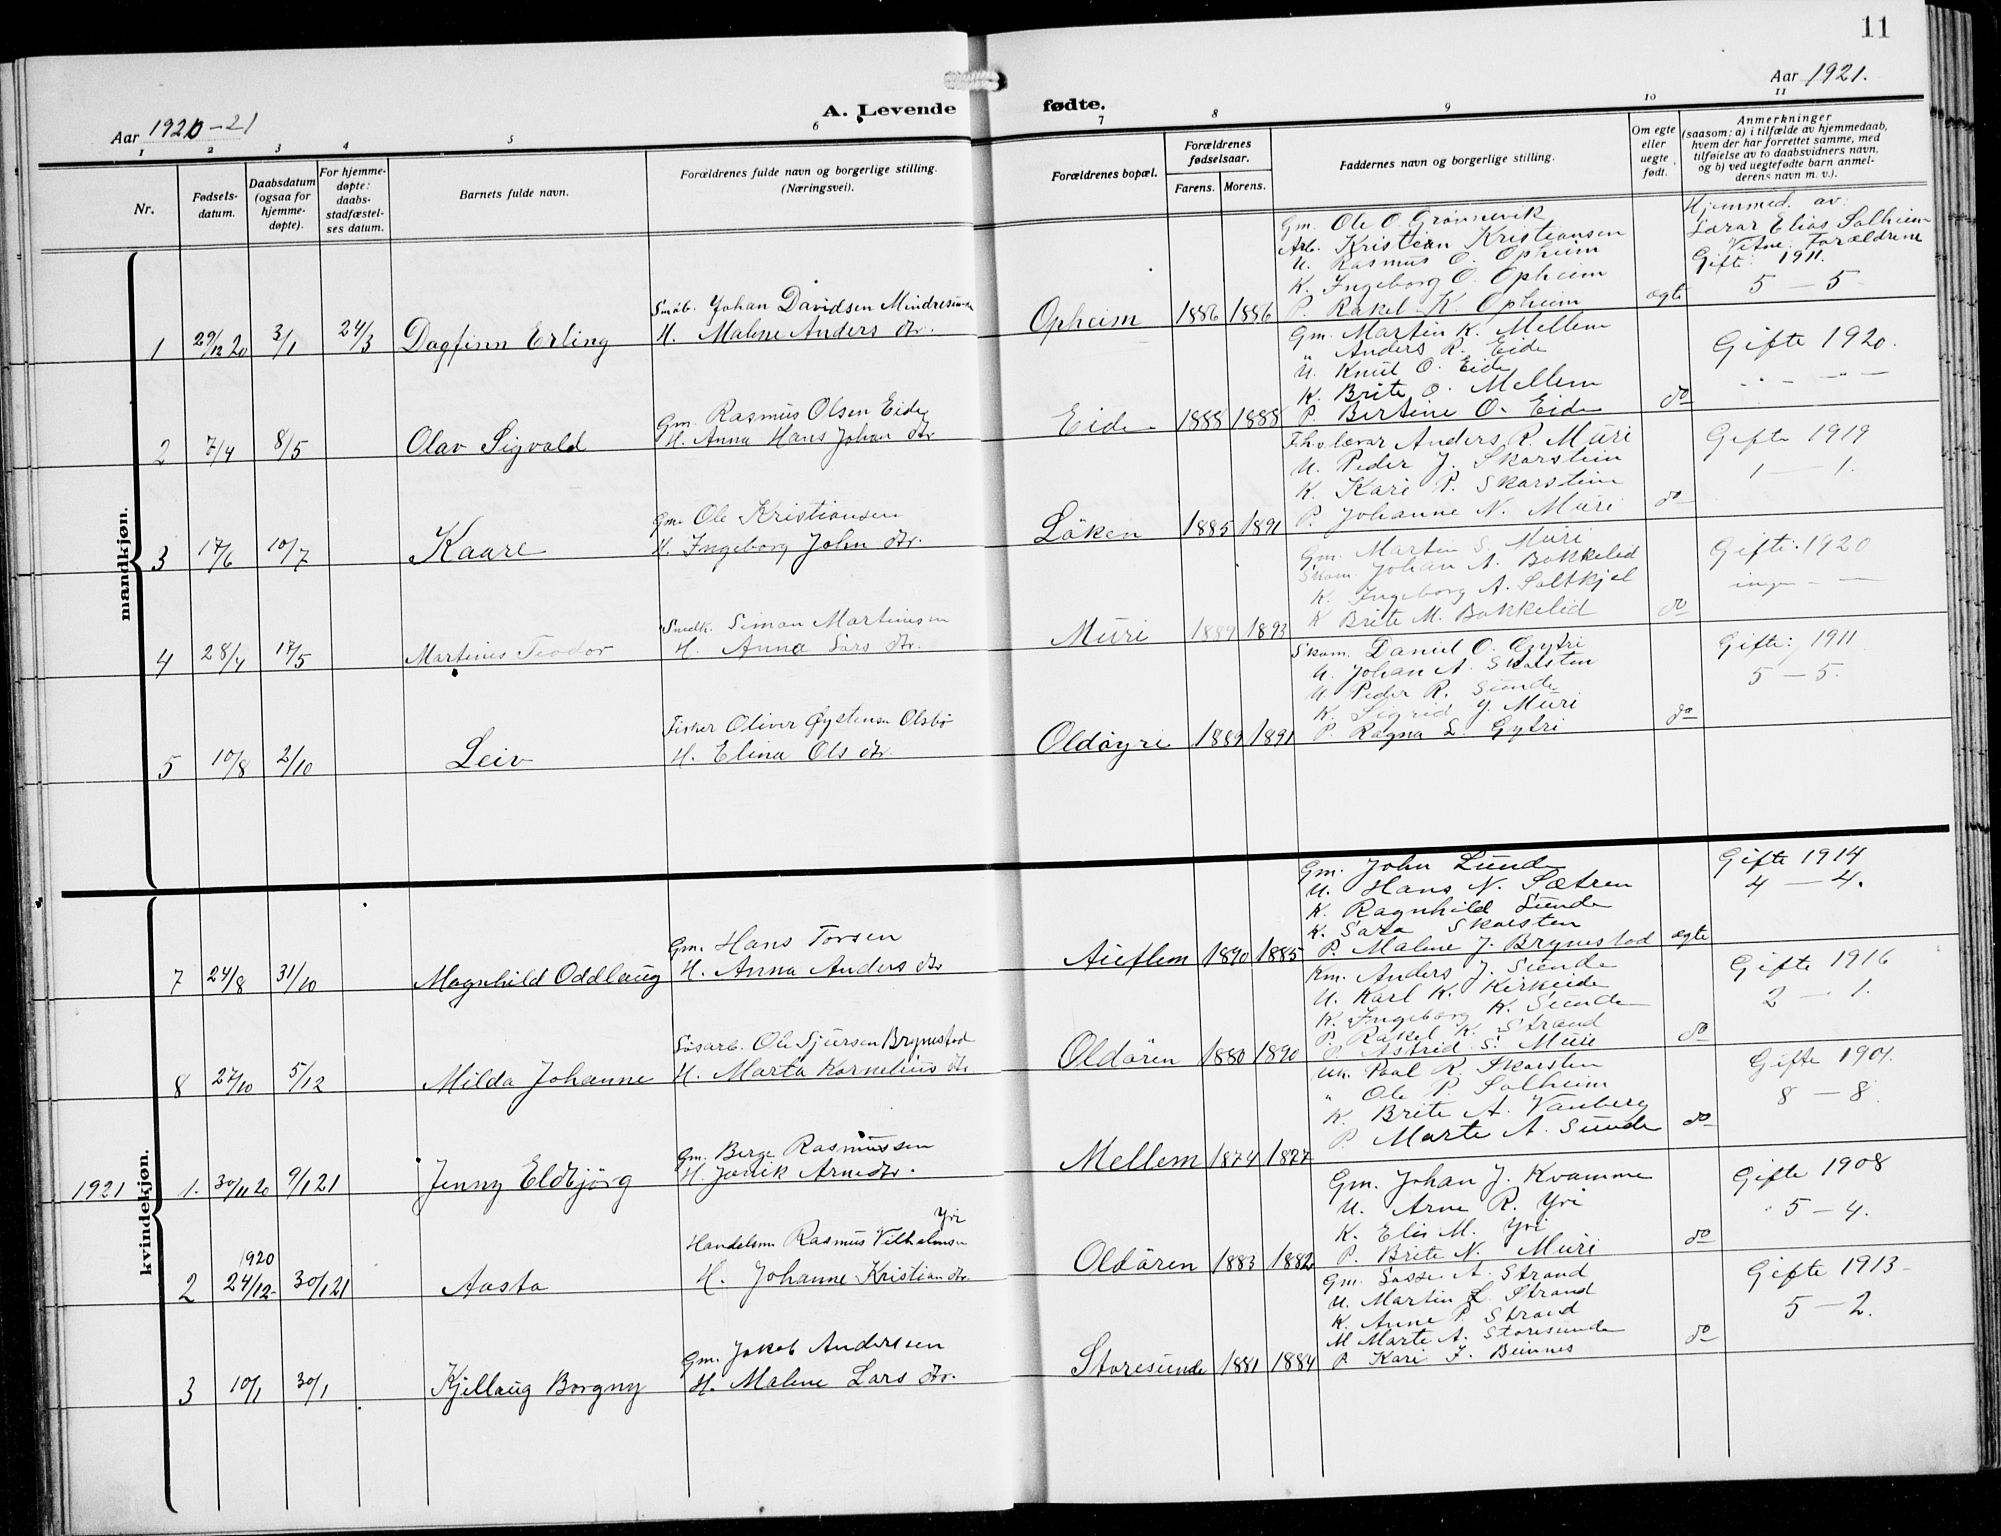 11
Aar 1920-21
A. Levende fødte.
Aar 1921.
1 2 3 4 5 6 7 8 9 10 11
Nr.
Fødsels-
datum.
Daabsdatum
(ogsaa for
hjemme-
døpte).
For hjemme-
døpte:
daabs-
stadfæstel-
ses datum.
Barnets fulde navn.
Forældrenes fulde navn og borgerlige stilling.
(Næringsvei).
Forældrenes bopæl.
Forældrenes
fødselsaar.
Farens. Morens.
Faddernes navn og borgerlige stilling.
Om egte
eller
uegte
født.
Anmerkninger
(saasom: a) i tilfælde av hjemmedaab,
hvem der har forrettet samme, med
tilføielse av to daabsvidners navn,
og b) ved uegtefødte barn anmel-
derens navn m. v.).
mandkjøn.
1 29/12 20 3/1 24/3 Dagfinn Erling
Småb. Johan Davidsen Mindresunde
H. Malene Anders dtr.
Opheim 1886 1886
Gm. Ole O. Grønnevik
Arb. Kristian Kristiansen
U. Rasmus O. Opheim
K. Ingeborg O. Opheim
P. Rakel K. Opheim
egte
Hjemmed. av:
Lærar Elias Solheim
Vitne: Forældrene
Gift: 1911.
5 - 5
2 7/4 8/5 Olav Sigvald
Gm. Rasmus Olsen Eide
H. Anna Hans Johan dtr
Eide 1888 1888
Gm. Martin K. Mellem
" Anders R. Eide
U. Knut O. Eide
K. Brite O. Mellem
P. Bertine O. Eide
do
Gifte 1920.
3 17/6 10/7 Kaare
Gm. Ole Kristiansen
H. Ingeborg John dtr.
Löken 1885 1891
Anders R. Muri
U. Peder J. Skarstein
K. Kari P. Skarstein
P. Johanne N. Muri
do
Gifte 1919
1 - 1.
4 28/4 17/5 Martines Teodor
Snedk. Simon Martinusen
H. Anna Lars dtr.
Muri 1889 1893
Gm. Martin S. Muri
Skom. Johan A. Bakkelid
K. Ingeborg A. Saltkjel
K Brite M. Bakkelid
do
Gifte: 1920
ingen - -
5 10/8 2/10 Leiv
Fisker Oliver Øystensen Olsbö
H. Elina Ols dtr.
Oldöyri 1889 1891
Skom. Daniel O. Gytri
U. Johan A. Skarsten
U. Peder R. Sunde
K. Sigrid J. Muri
P. Ragna L. Gytri
do
Gifte: 1911
5 - 5.
kvindekjøn.
7 24/8 31/10 Magnhild Oddlaug
Gm. Hans Torsen
H. Anna Anders dtr
Auflem 1890 1885
Gm. John Sunde
U. Hans N. Sætren
K. Ragnhild Sunde
K. Sara Skarsten
P. Malene J. Brynestad
egte
Gifte 1914
4 - 4.
8 27/10 5/12 Milda Johanne
Ole Sjursen Brynestad
H. Marta Kornelius dtr
Oldören 1880 1890
Km. Anders J. Sunde
U. Karl K. Kirkeide
K. Ingeborg K. Sunde
P. Rakel K. Strand
P. Astrid S. Muri
do
Gifte 1916
2 - 1.
1921 1. 30/11 20 9/1 21 Jenny Eldbjörg
Gm. Berge Rasmussen
H. Janik Arnedtr.
Mellem 1874 1877
Um. Paal R. Skarsten
" Ole P. Solheim
K. Brite A. Vanberg
P. Marte A. Sunde
do
Gifte 1901.
8 - 8.
2 1920 24/12- 30/1 21 Aasta
Yri
Handelsm Rasmus Vilhelmsen
H. Johanne Kristian dtr.
Oldören 1883 1882
Gm. Johan J. Kvamme
U. Arne R. Yri
K. Elis M. Yri
P. Brite N. Muri
do
Gifte 1908
5 - 4.
3 10/1 30/1 Kjellaug Borgny
Gm. Jakob Anderssen
H. Malene Lars dtr.
Storesunde 1881 1884
Gm. Lasse A. Strand
U. Martin L. Strand
K. Anne P. Strand
M Marte A. Storesunde
P. Kari J. Beinnes
do
Gifte 1913-
5 - 2.